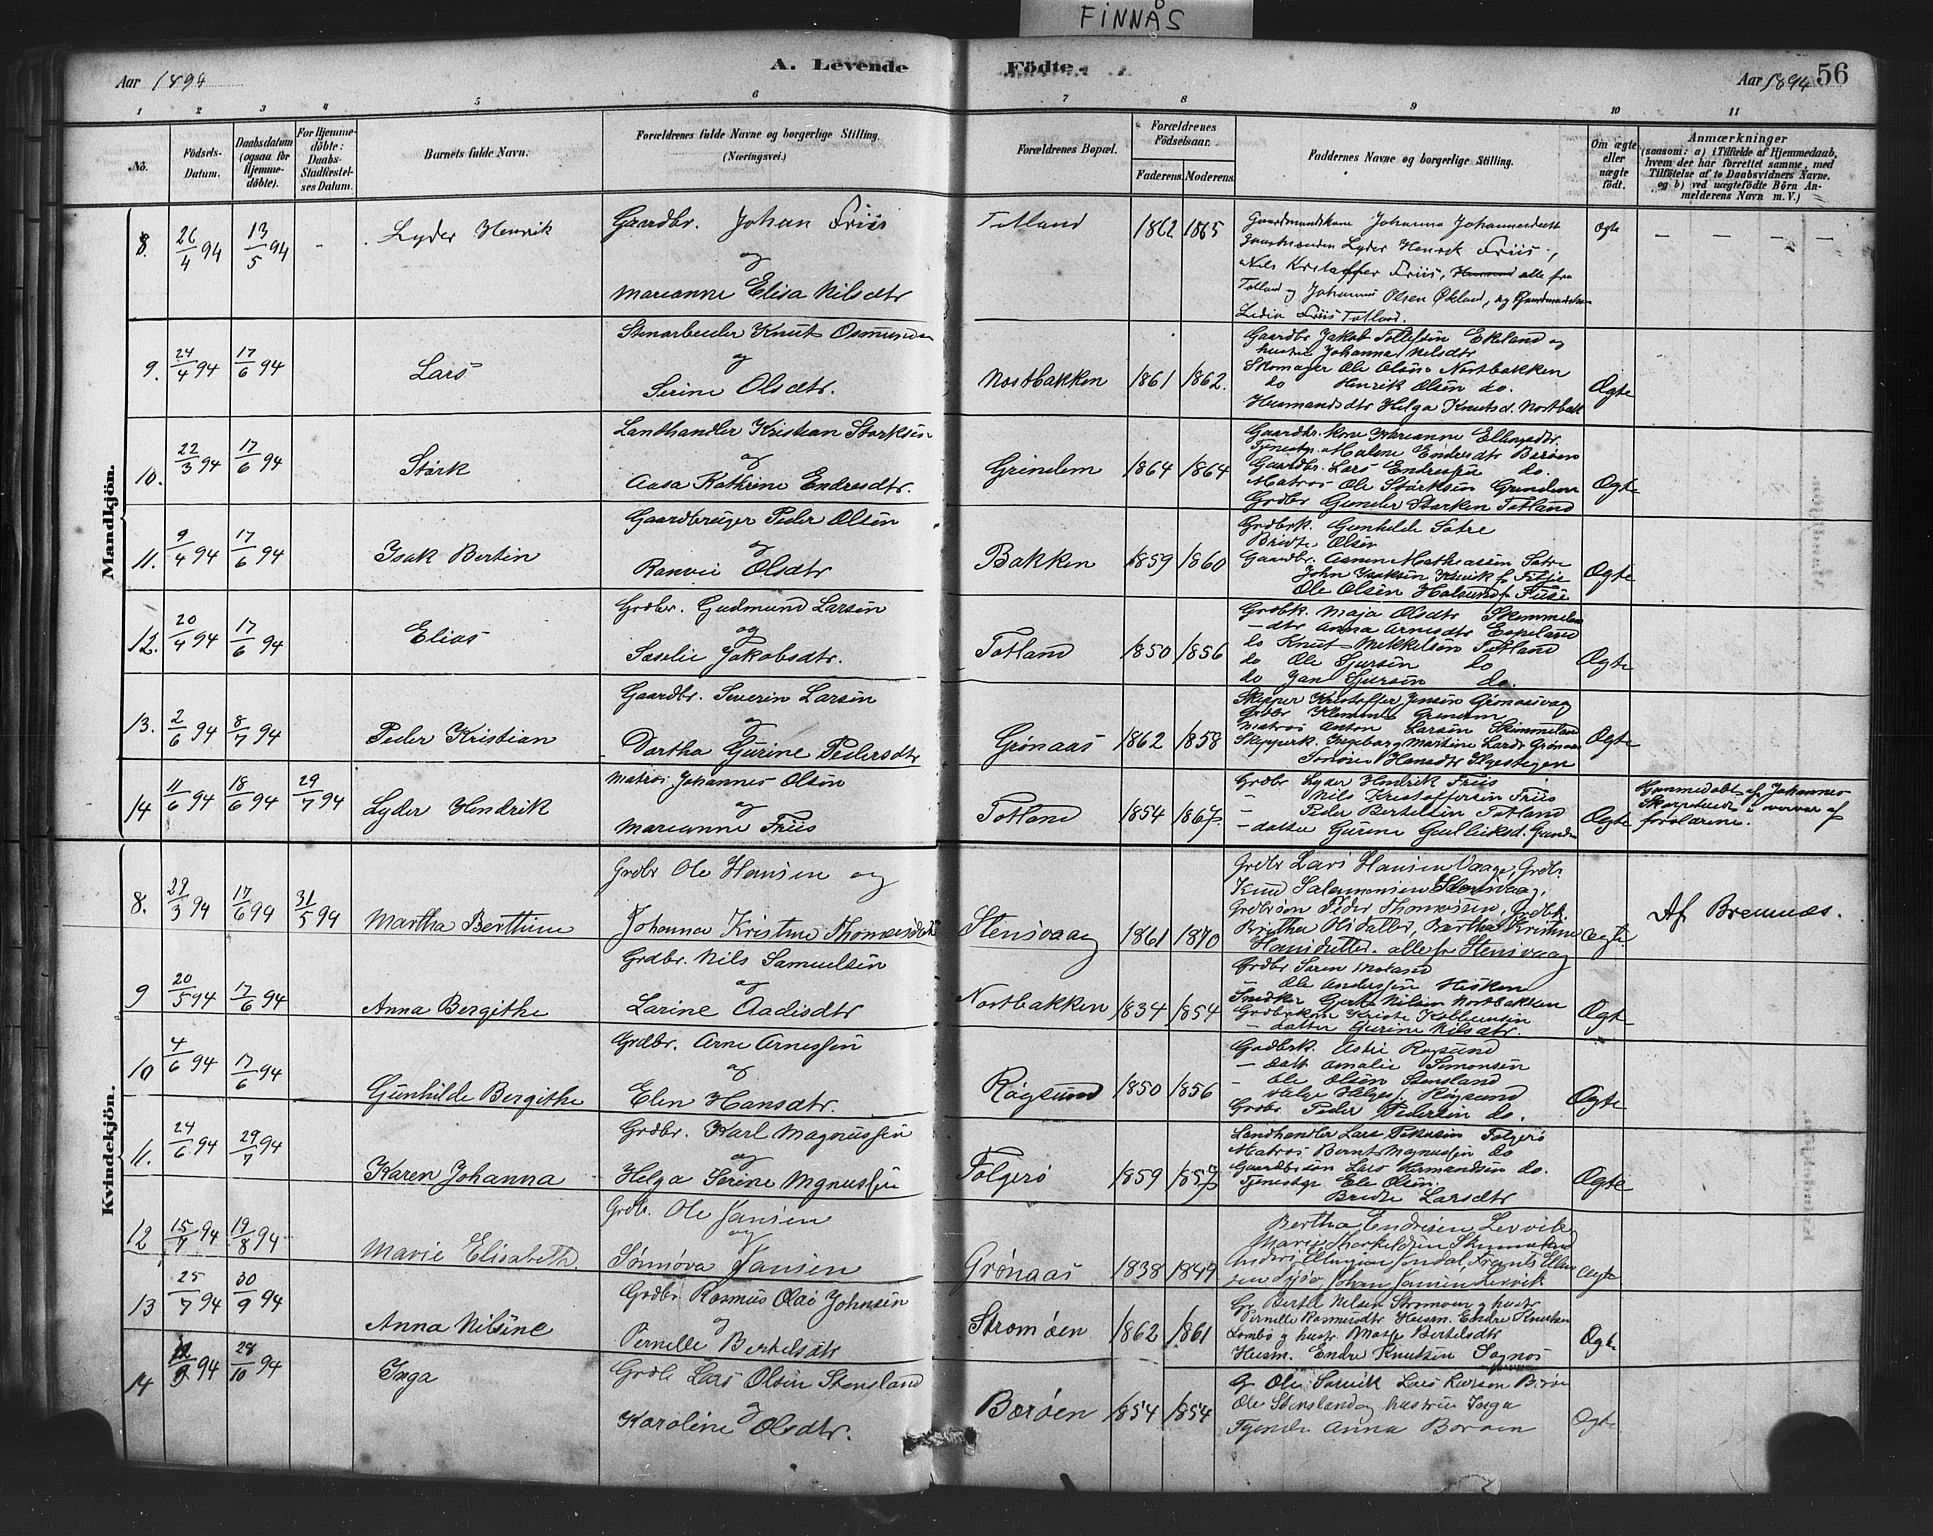 FINNÅS
Aar 1894
A. Levende
Födte.
Aar 1894 56
1 2 3 4 5 6 7 8 9 10 11
No.
Födsels-Datum.
Daabsdatum (ogsaa for Hjemmedöbte).
For Hjemmedöbte: Daabs-Stadfæstelses Datum.
Barnets fulde Navn.
Forældrenes fulde Navne og borgerlige Stilling. (Næringsvei.)
Forældrenes Bopæl.
Forældrenes Födselsaar.
Faderens. Moderens.
Faddernes Navne og borgerlige Stilling.
Om ægte eller uægte födt.
Anmærkninger
(saasom: a) i Tilfælde af Hjemmedaab, hvem der har forrettet samme, med Tilföielse af to Daabsvidners Navne, og b) ved uægtefödte Börn Anmelderens Navn m. V.)
Mandkjön.
8. 26/4 94 13/5 94 - Lyder Henrik
Gaardbr. Johan Friis
og
Marianne Elisa Nilsdtr
Totland 1862 1865
Gaardmandskone Johanna Johannesdatt
Gaardmanden Lyder Henrik Friis,
Nils Kristoffer Friis, alle fra
Totland og Johannes Olsen Økland, og
Lidia Friis Totland.
Ægte
9. 24/4 94 17/6 94 Lars
Stenarbeider Knut Osmundsen
og
Serine Olsdtr.
Nostbakken 1861 1862.
Gaardbr Jakob Tollefsen Ekland og
hustru Johanna Nilsdtr
Skomager Ole Olsen Nostbakken
do Henrik Olsen do.
Husmandsdtr Helga Knutsd. Nostbak
Ægte
10. 22/3 94 17/6 94 Størk
Landhandler Kristian Størksen
og
Aasa Kathrine Endresdtr.
Grindem 1864 1864
Gaardbr. kone Marianne Ellingsdtr.
Tjenestp. Malene Endresdtr Børøen
Gaardbr. Lars Endressen do.
Matros Ole Størksen Grindem
Grdbr Gunder Størksen Totland
Ægte
11. 9/4 94 17/6 94 Isak Bertin
Gaardbruger Peder Olsen
og
Ranvei Olsdtr
Bakken 1859 1860
Grdbrk. Gunhilde Sætre
Bridte Olsen
Gaardbr. Aamen Mathiassen Sætre
John Isaksen
Ole Olsen
Ægte
12. 20/4 94 17/6 94 Elias
Grdbr. Gudmund Larsen
og
Soselie Jakobsdtr.
Totland 1850 1856
Grdbk. Maja Olsdtr
- dtr Anna Arnesdtr Eskeland
do Knut Mikkelsen Totland
do Ole Gjersen do
do Jan Gjersen do.
Ægte
13. 2/6 94 8/7 94 Peder Kristian
Gaardbr. Severin Larsen
og
Dortha Gurine Pedersdtr
Grønaas 1862 1858
Skipper Kristoffer Jensen Grønaasvaag
Grdbr Klement Grindem
Matros Anton Larsen Skimmeland
Skipperk. Ingeborg Martine Larsd. Grønaas
Hansdtr
Ægte
14 11/6 94 18/6 94 29/7 94 Lyder Hendrik
Matros Johannes Olsen
og
Marianne Friis
Totland 1854 1867
Grdbr Lyder Hendrik Friis
- Nils Kristoffersen Friis
- Peder Bertelsen Totland
- datter Gurine Gulleiksd. Grindem
Ægte
Hjemmedøbt af Johannes
i overvær af
forældrene.
Kvindekjön.
8. 29/3 94 17/6 94 31/5 94 Martha Berthine
Grdbr Ole Hansen og
Johanna Kristine Thomasdatter
Stensvaag 1861 1870
Grdbr Lars Hansen Vaage, Grdbr.
Knud Salamonsen Stensvaag,
Grdbrsøn Peder Thomassen, Grdbk.
Brytha Olsdatter, Bertha Kristine
Hansdatter. alle fr Stensvaag
Ægte
Af Bremnæs.
9 20/5 94 17/6 94 Anna Bergithe
Grdbr. Nils Samuelsen
og
Larine Aadisdtr
Nostbakken 1834 1854
Grdbr Søren
- Ole Anderssen Hisken
Snedker Gert Nilsen Nostbakken
Grdbrkone Kriste
- datter Gurine Nilsdtr.
Ægte
10 4/6 94 17/6 94 Gunhilde Bergithe
Grdbr. Arne Arnessen
og
Elen Hansdtr.
Røgsund 1850 1856
Grdbrk. Astri Røgsund
- datt Amalie Simonsen
- Ole Olsen Stensland
Helge Helges. Røgsund
Grdbr. Peder Pedersen do.
Ægte
11. 24/6 94 29/7 94 Karen Johanna
Grdbr. Karl Magnussen
og
Helga Serine Mgnussen
Folgerø 1859 1857
Landhandler Lars Folgerø
Matros Bernt Magnussen do
Gaardbrsøn Lars Hermandsen do.
Tjenestp Ole Olsen.
Bridte Larsdtr
Ægte
12 15/7 94 19/8 94 Marie Elisabeth
Grdb. Ole Jansen
og
Sønnøva Jansen
Grønaas 1838 1849
Bertha Endresen Lervik
Marie Thorkildsen Skimmeland
Johan Jansen Lervik
Ægte
13 25/7 94 30/9 94 Anna Nilsine
Grdbr Rasmus Olai Johnsen
og
Pernille Bertelsdtr
Strømøen 1862 1861
Gr Bertel Nilsen Strømøen og hustr
Pernille Rasmusdtr Husm. Endre Knutsen
og hustr. Bertelsdtr
Husm. Endre Knutsen
Ægte
14 94 28/10 94 Inga
Grdb Lars Olsen Stensland
og
Karoline Olsdtr.
Børøen 1854 1854
Gr Ole Lars Larsen
Ole Stensland og hustru Inga
Anna Børøen
Ægte